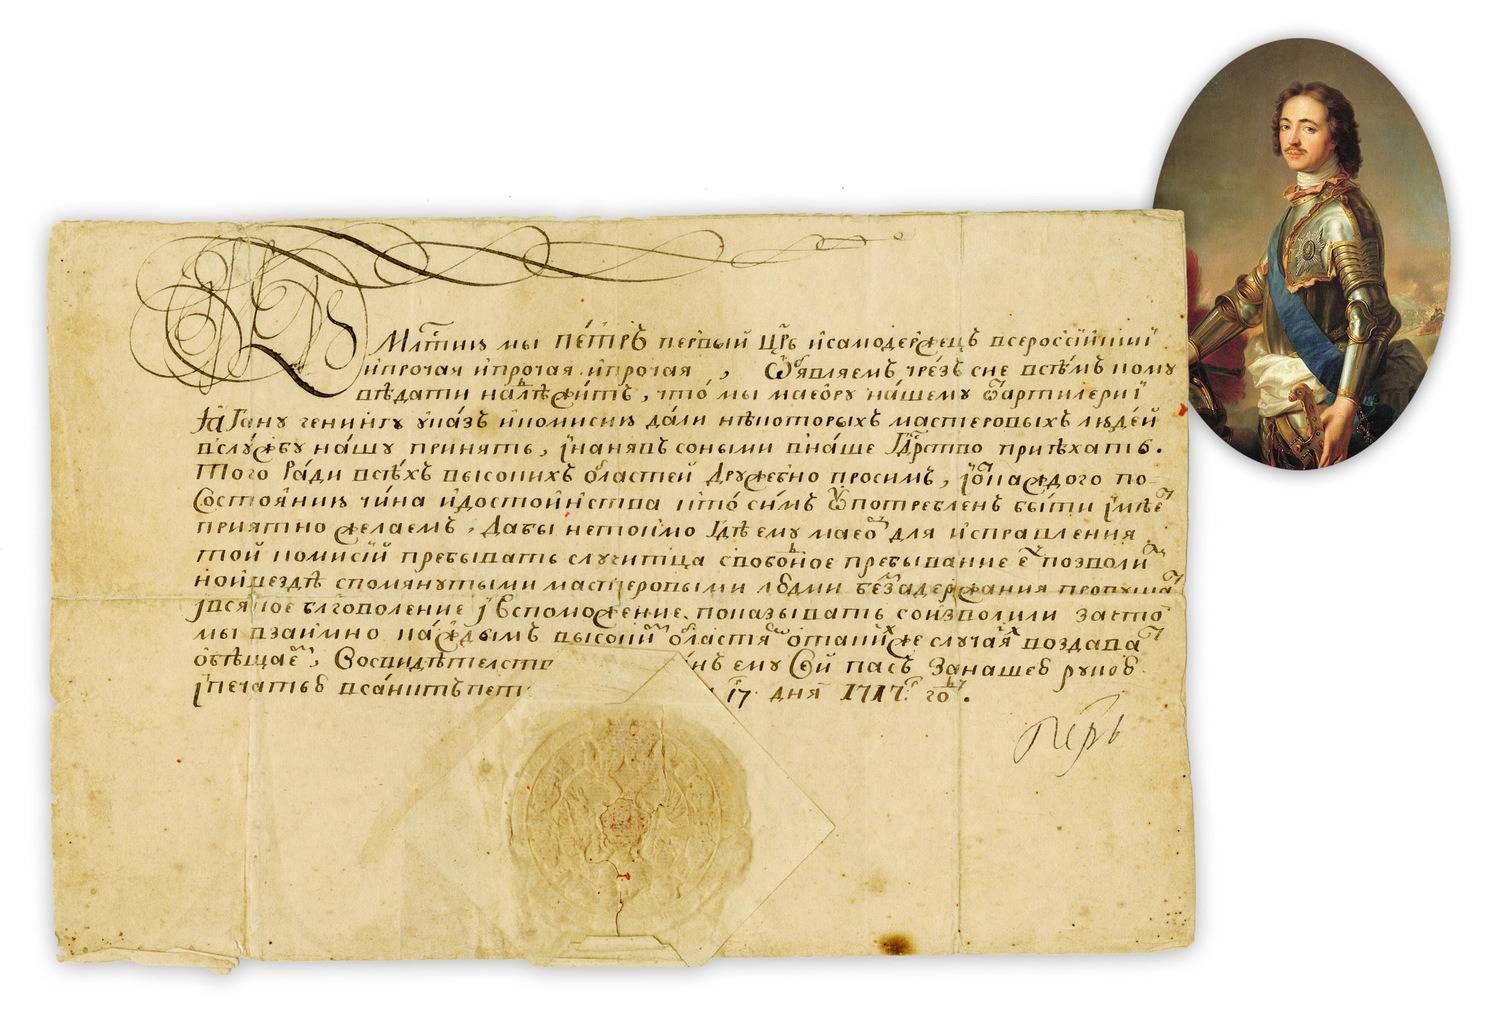 Млстию мы ПЕТРЪ первый црь исамодержецъ всероссiйскiй
ипрочая ипрочая ипрочая , Ѡбъявляемъ чрезъ сие всѣмъ кому
вѣдати надлежитъ , что мы маеору нашему ѿ артилерiи
Гену генингу указъ икомисию дали нѣкоторыхъ мастеровыхъ людей
вслужбу нашу принять , iнанявъ соными внаше црство приѣхать .
того ради всѣхъ высокихъ областей дружебно просимъ ,
состоянию чина идостоинства кто симъ ѹпотребленъ быти
приятно желаемъ , дабы нетокмо гдѣ ему маеоу для исправления
той комисiй пребывать случитца свободное пребывание ег позволи
спомянутыми мастеровыми людми безадержания
iвсякое благоволение iвспоможение показывать соизволили зачто
мы взаимно каждымъ высокимъ областямъ отакихже случаях воздава
обѣщаем , Восвидѣтелство ему сей пасъ Занашею рукою
iпечатью всанктъпет 17 дня 1717г го .
Петръ